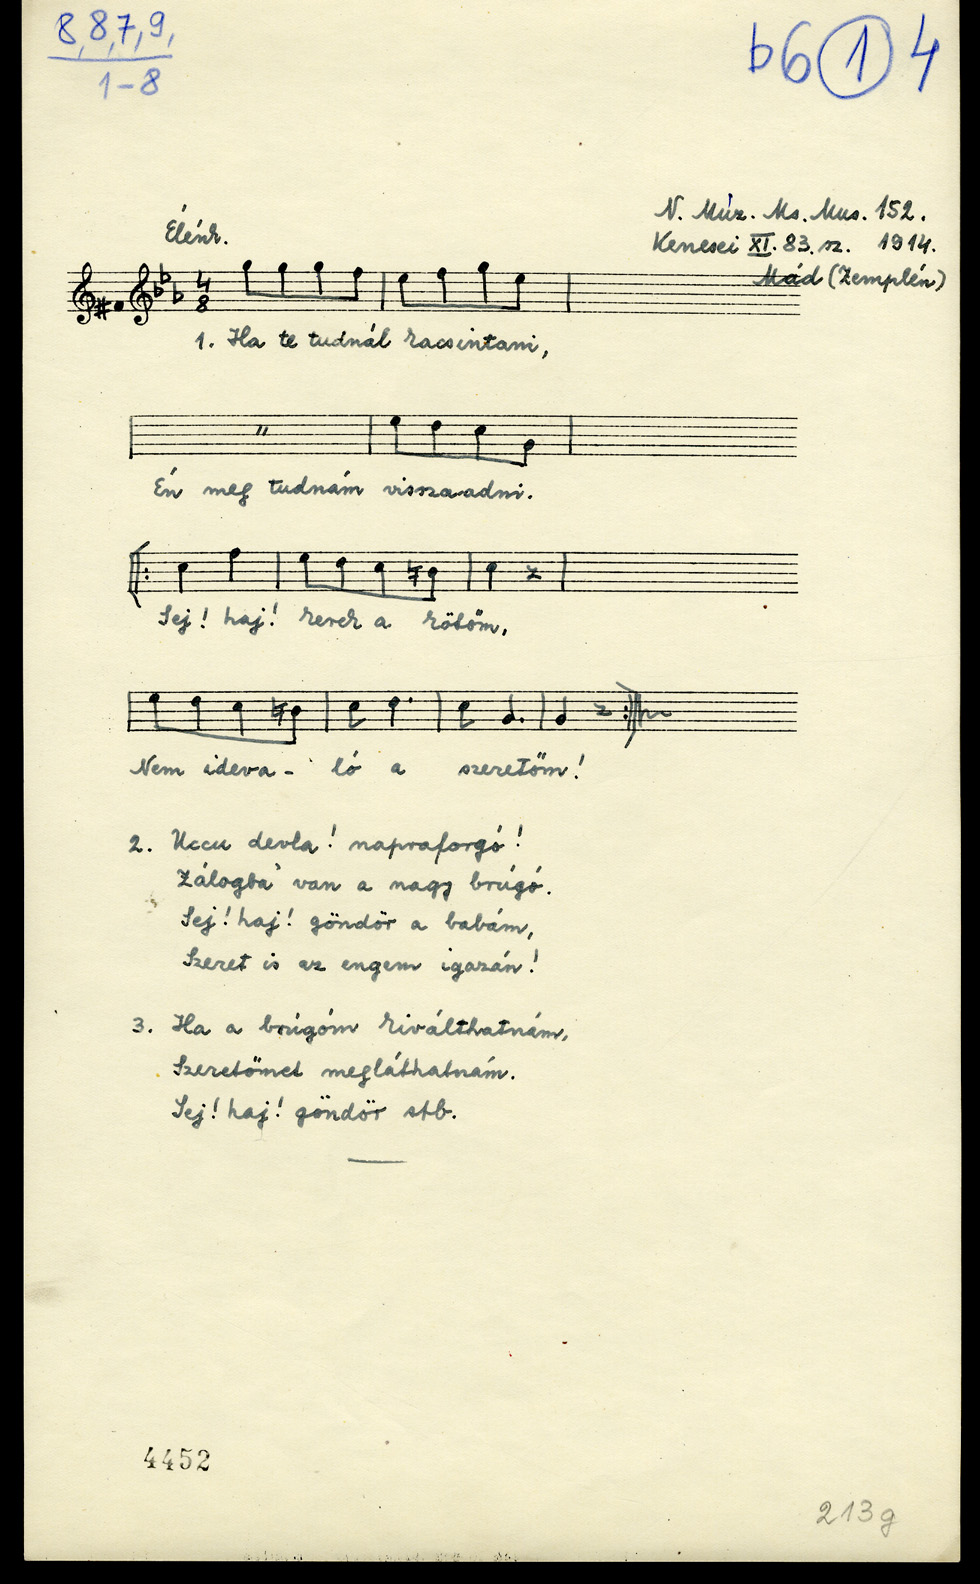 8,8,7,9,
1-8
b6 1 4
N. Múz. Ms. Mus. 152.
Kenesei XI. 83. sz. 1914.
Mád (Zemplén)
Élénk.
4
8
1. Ha te tudnál kacsintani,
"
Én meg tudnám visszaadni.
Sej! haj! kerek a kötőm,
Nem ideva- ló a szeretőm!
2. Uccu devla! napraforgó!
Zálogba' van a nagy brúgó.
Sej! haj! göndör a babám,
Szeret is az engem igazán!
3. Ha a brúgóm kiválthatnám,
Szeretőmet megláthatnám.
Sej! haj! göndör stb.
4452
213g